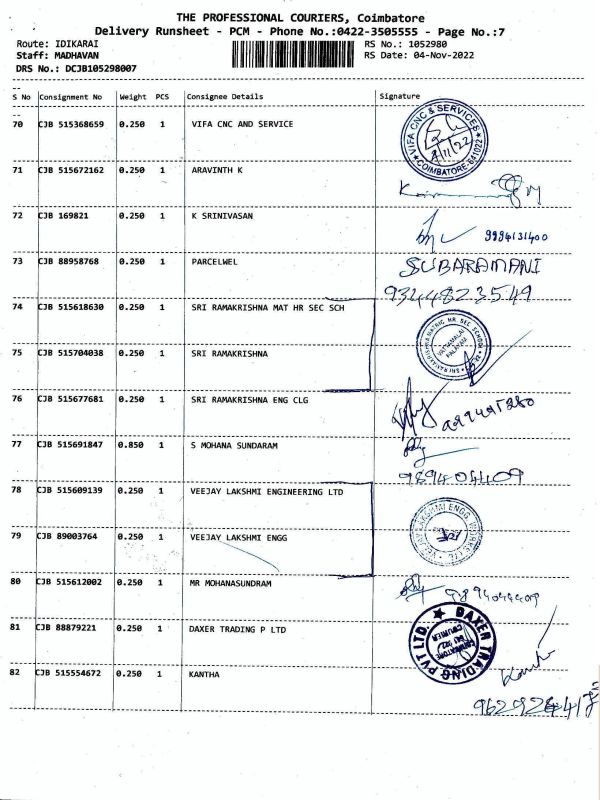 THE PROFESSIONAL COURIERS, Coimbatore
Delivery Runsheet - PCM - Phone No.:0422-3505555 - Page No.:7
Route: IDIKARAI RS No.: 1052980
Staff: MADHAVAN RS Date: 04-Nov-2022
DRS No.: DCJB105298007
S No Consignment No Weight PCS Consignee Details Signature
70 CJB 515368659 0.250 1 VIFA CNC AND SERVICE
VIFA CNC & SERVICES COIMBATORE-641022
71 CJB 515672162 0.250 1 ARAVINTH K
72 CJB 169821 0.250 1 K SRINIVASAN
9994131400
73 CJB 88958768 0.250 1 PARCELWEL SUBARAMANI
9344823549
74 CJB 515618630 0.250 1 SRI RAMAKRISHNA MAT HR SEC SCH
75 CJB 515704038 0.250 1 SRI RAMAKRISHNA
76 CJB 515677681 0.250 1 SRI RAMAKRISHNA ENG CLG
77 CJB 515691847 0.850 1 S MOHANA SUNDARAM
9894044409
78 CJB 515609139 0.250 1 VEEJAY LAKSHMI ENGINEERING LTD
79 CJB 89003764 0.250 1 VEEJAY LAKSHMI ENGG
80 CJB 515612002 0.250 1 MR MOHANASUNDRAM
9894044409
81 CJB 88879221 0.250 1 DAXER TRADING P LTD
DAXER TRADING PVT LTD.
82 CJB 515554672 0.250 1 KANTHA